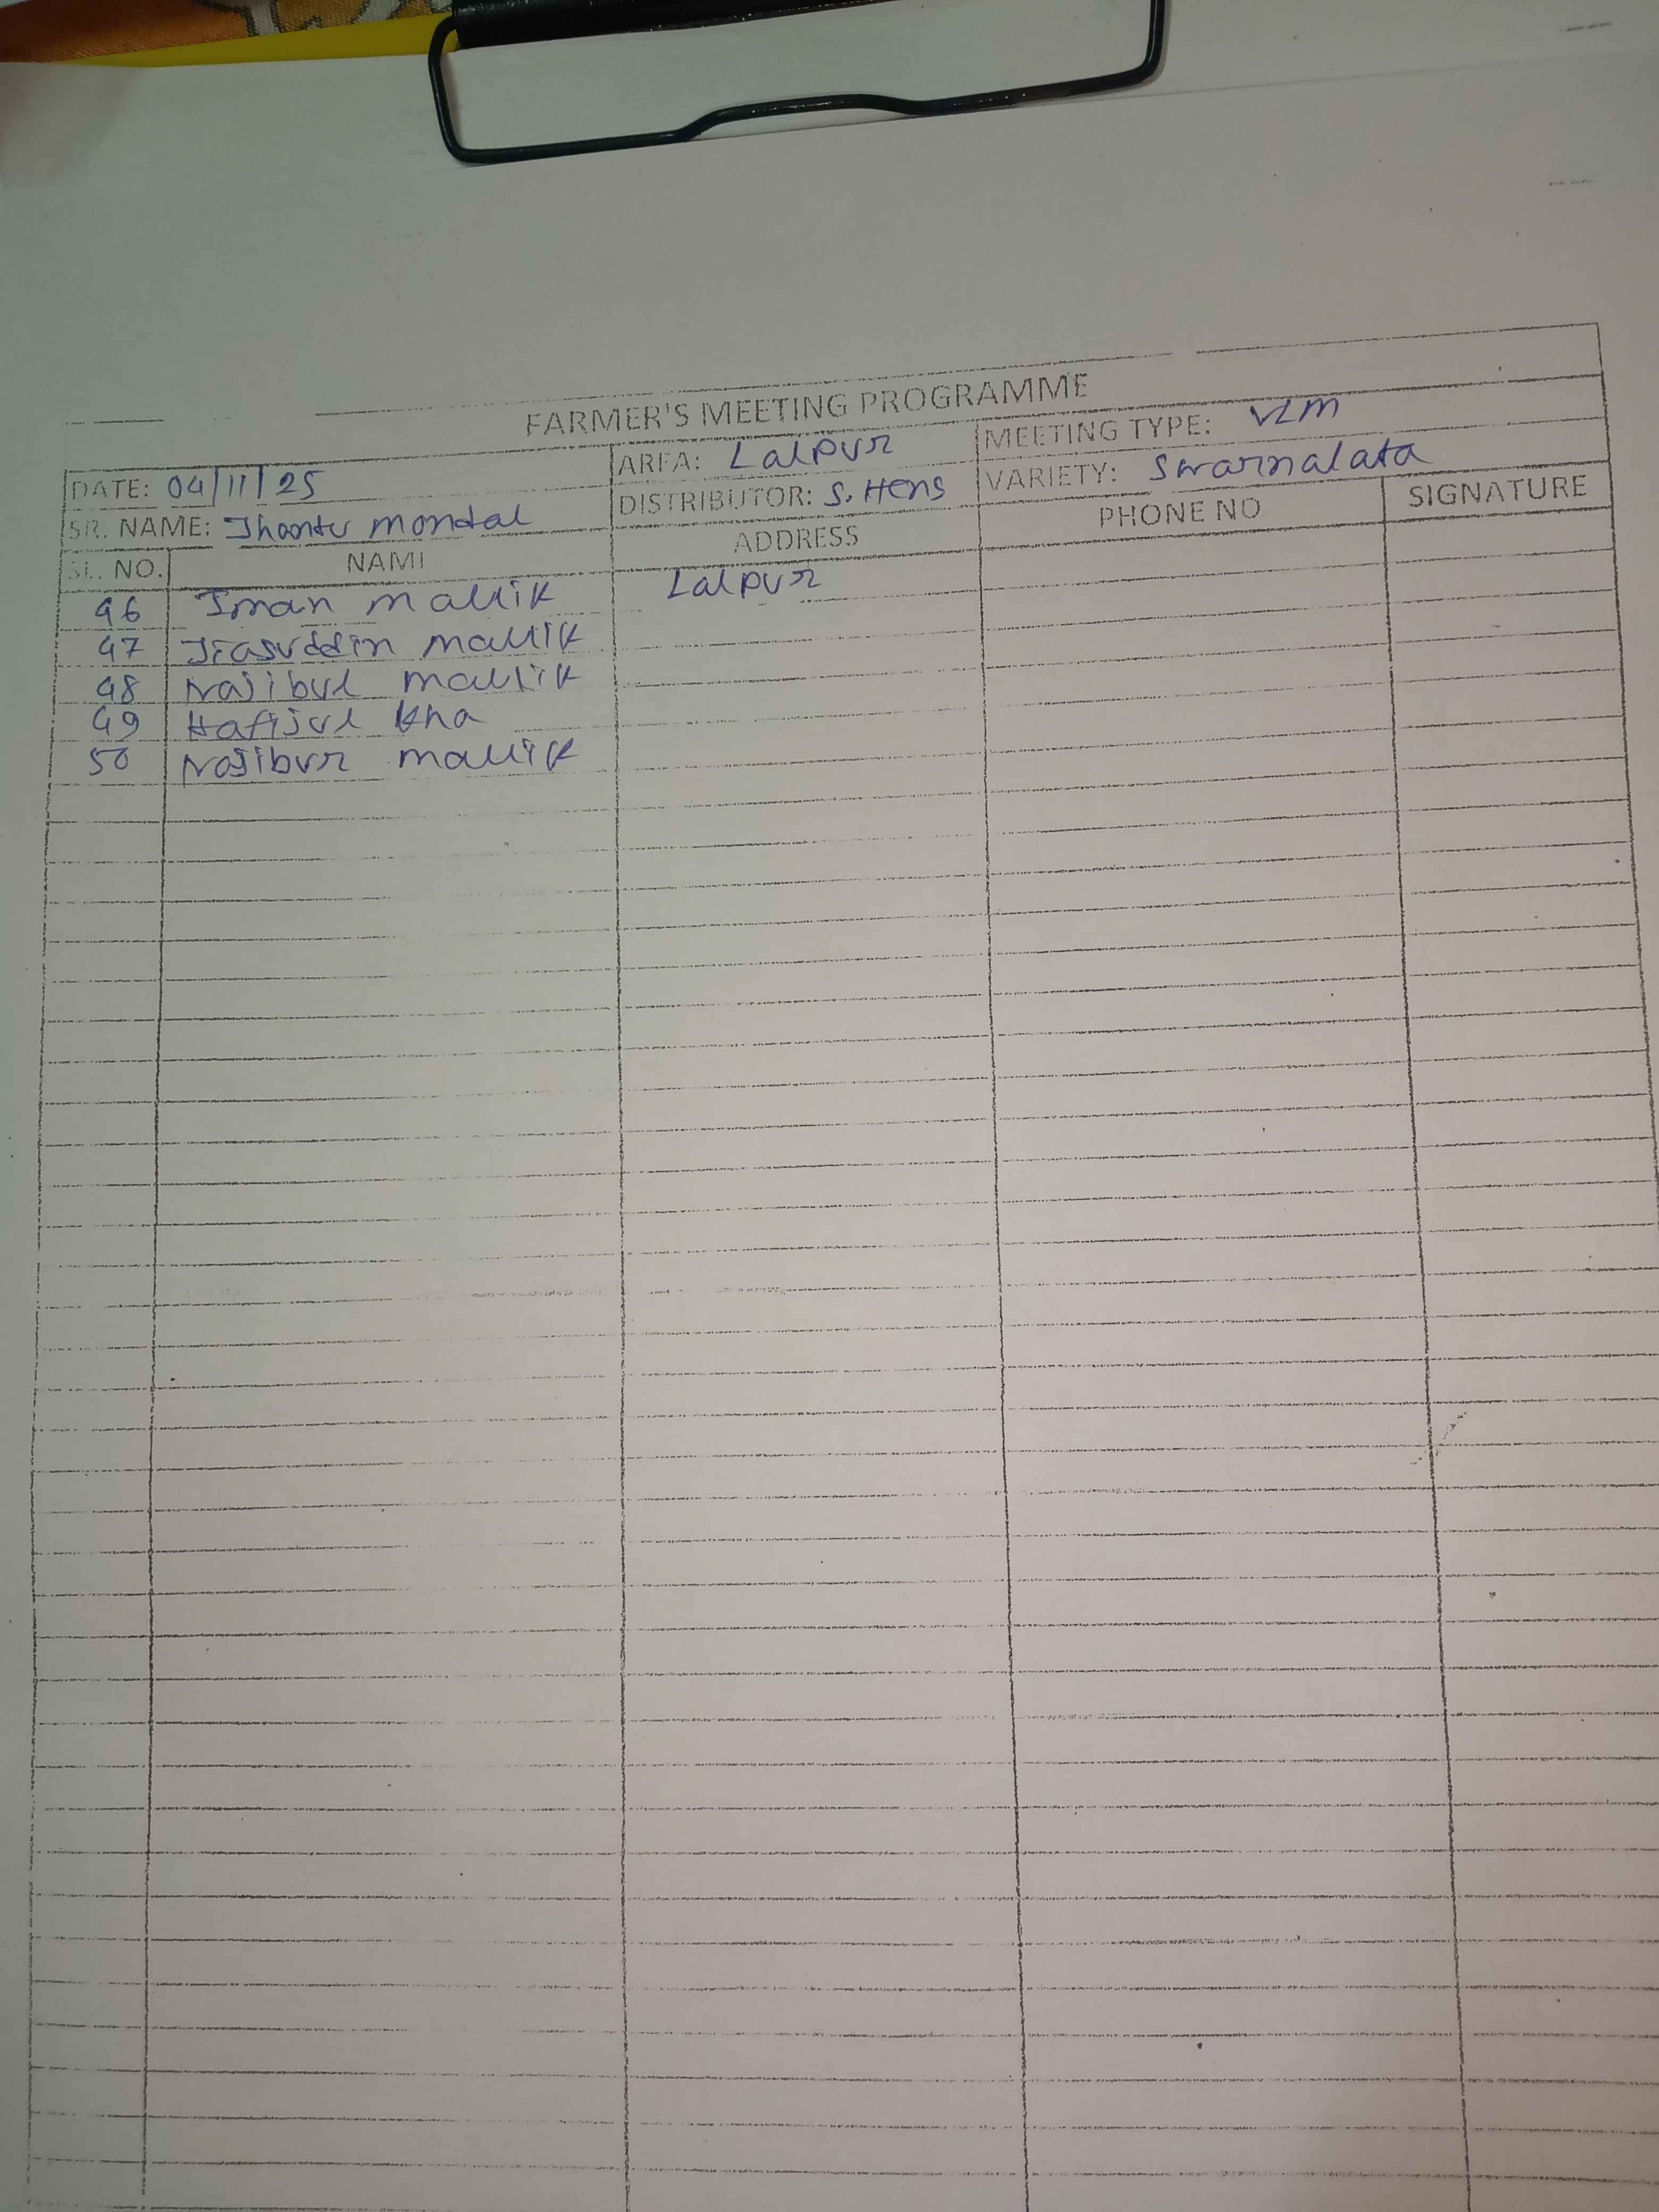 FARMER'S MEETING PROGRAMME
DATE: 04/11/25 AREA: Lalpur MEETING TYPE: VLM
SR. NAME: Jhantu mondal DISTRIBUTOR: S. Hens VARIETY: Swarnalata
SL. NO. NAME ADDRESS PHONE NO SIGNATURE
46 Iman mallik Lalpur
47 Jiasuddin mallik
48 Najibul mallik
49 Hafijul kha
50 Najibur mallik